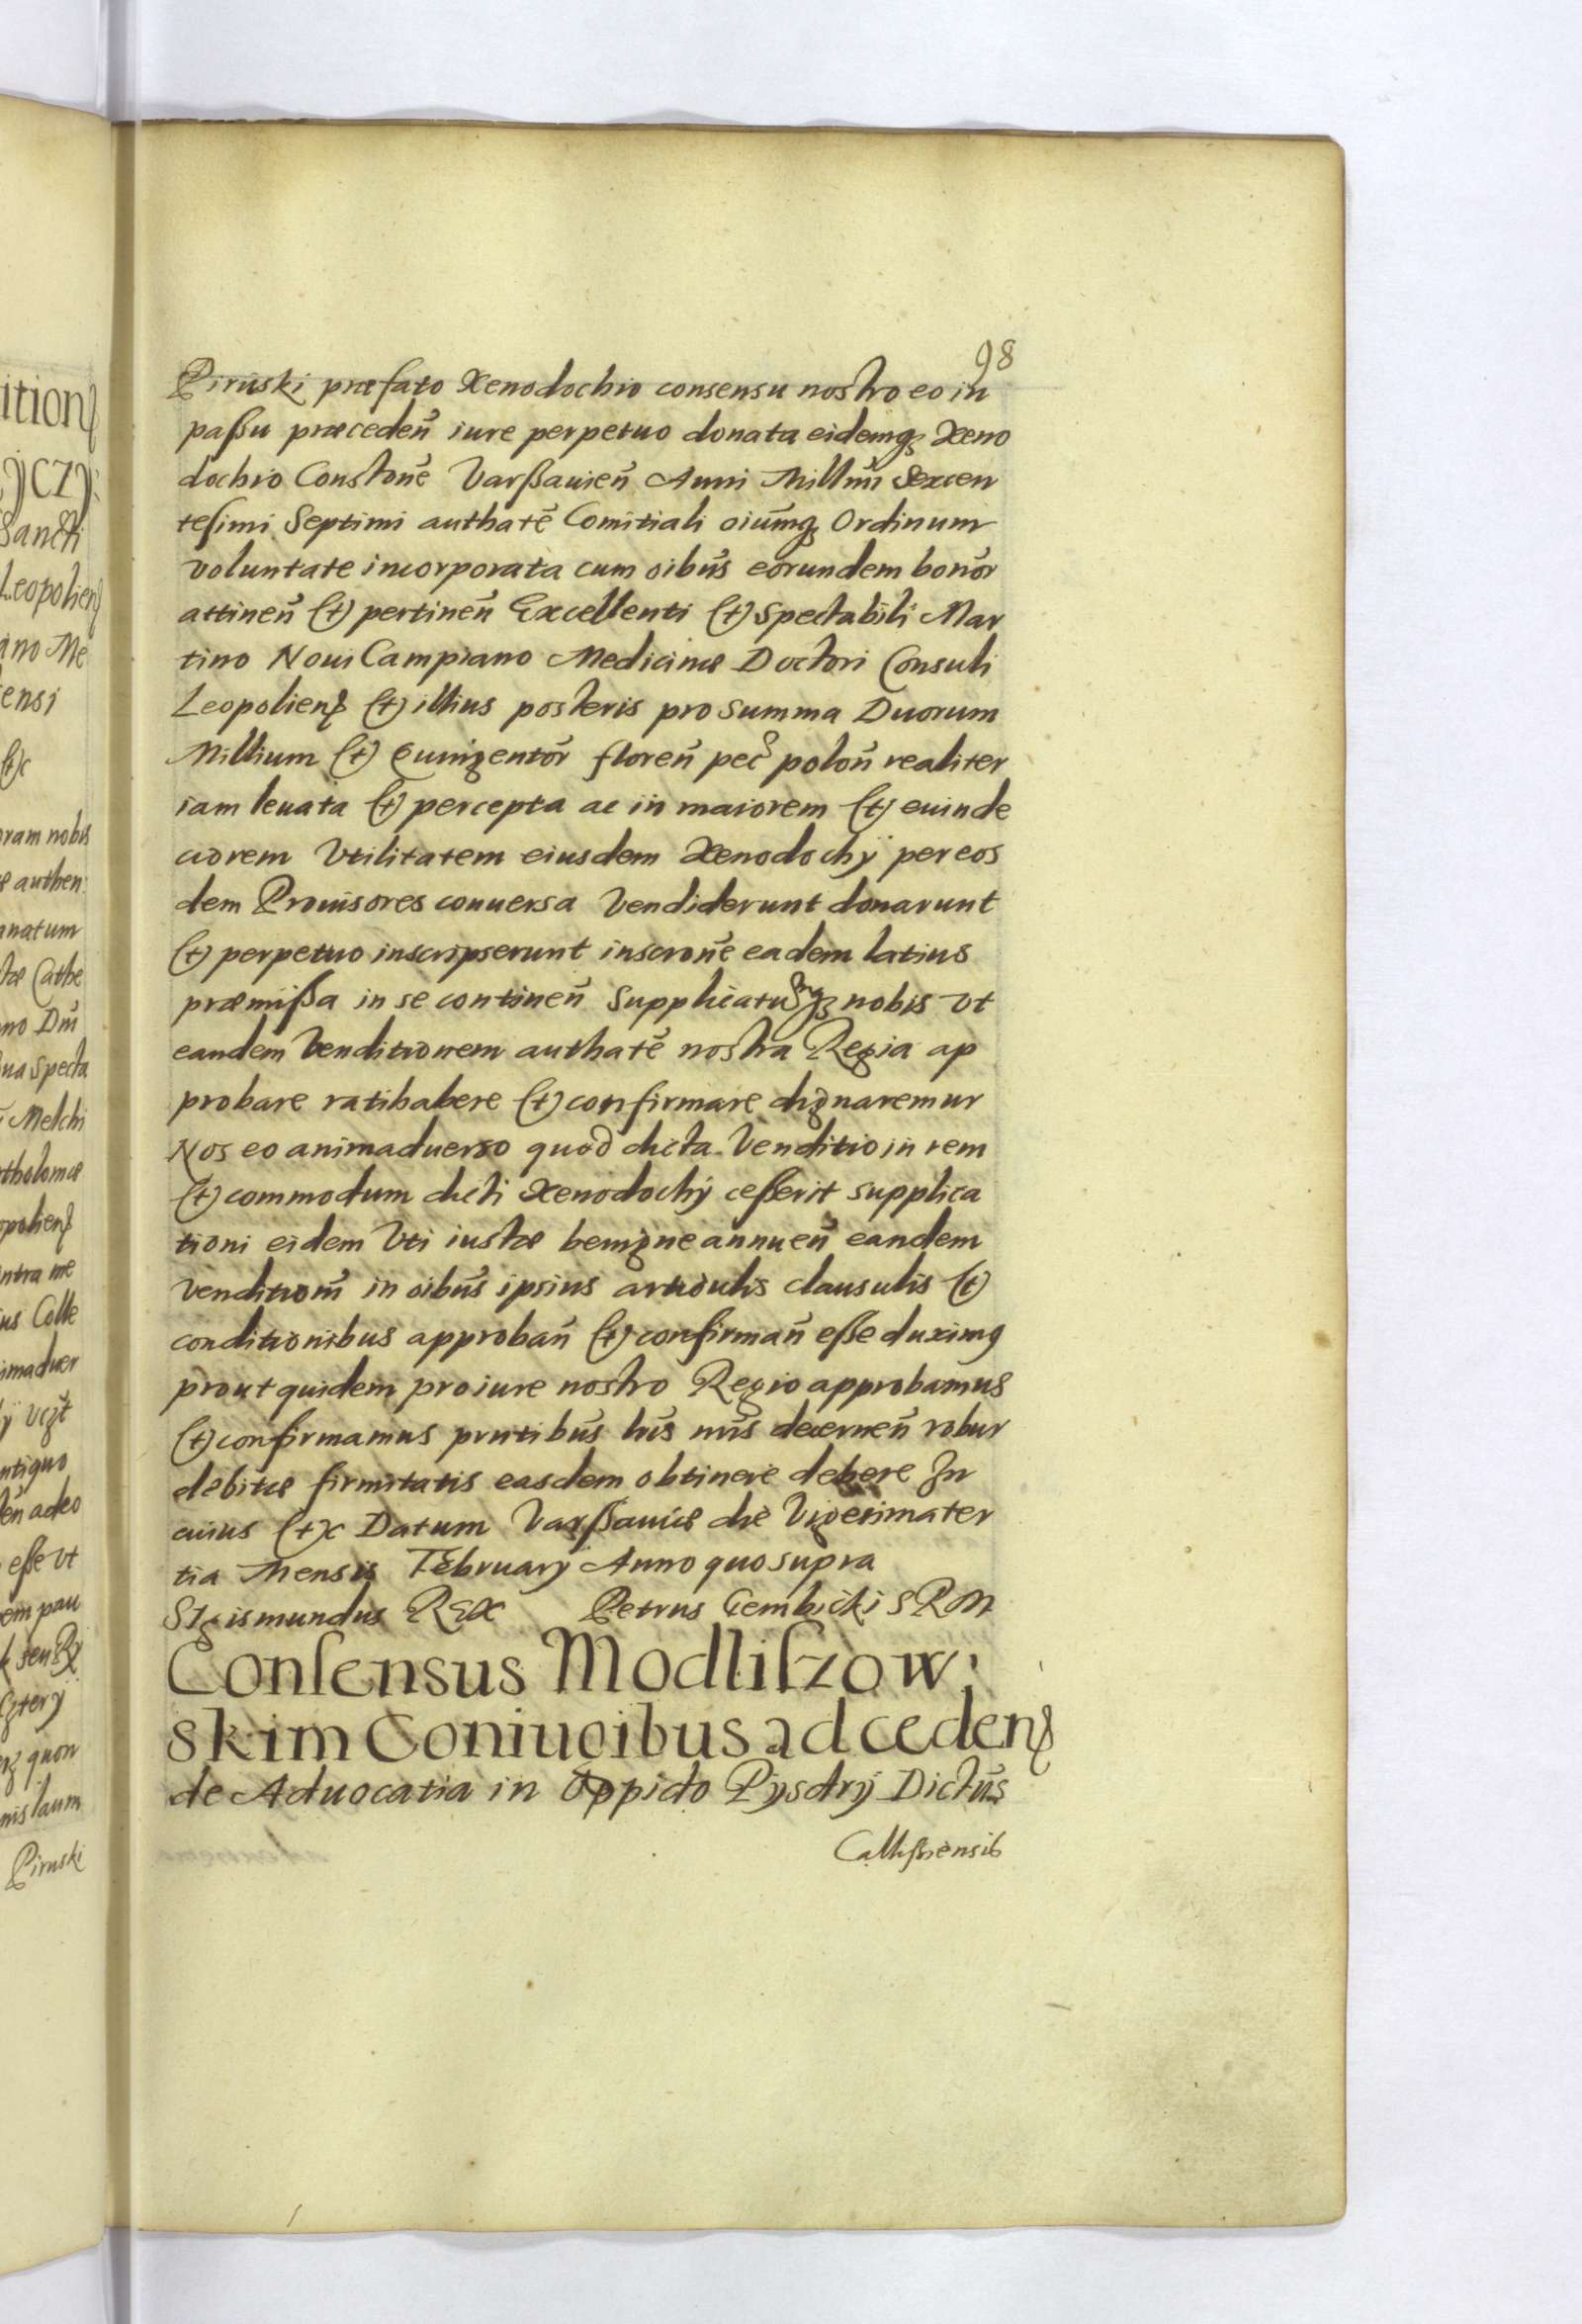 98
Piruski præfato Xenodochio consensu nostro eo in
paßu præceden̄ iure perpetuo donata eidemqꝫ Xeno
dochio Constōne Varßauien̄ Anni Millmi Sexcen
tesimi Septimi authatē Comitiali oiūmqꝫ Ordinum
voluntate incorporata cum oibūs eorundem bonōr
attinen̄ (et) pertinen̄ Excellenti (et) Spectabili Mar
tino Noui Campiano Medicinæ Doctori Consuli
Leopoliens (et) illius posteris pro Summa Duorum
Millium (et) Quingentōr floren̄ pec̄ polon̄ realiter
iam leuata (et) percepta ac in maiorem (et) euinde
ciorem Vtilitatem eiusdem Xenodochÿ per eos
dem Prouisores conuersa Vendiderunt donarunt
(et) perpetuo inscripserunt inscrōne eadem latius
præmißa in se continen̄ Supplicatumqꝫ nobis vt
eandem Venditionem authatē nostra Regia ap
probare ratihabere (et) confirmare dignaremur
Nos eo animaduerso quod dicta Venditio in rem
(et) commodum dicti Xenodochÿ ceßerit supplica
tioni eidem Vti iustæ benigne annuen̄ eandem
venditiom̄ in oibūs ipsius articulis clausulis (et)
conditionibus approban̄ (et) confirman̄ eße duximꝯ
prout quidem pro iure nostro Regio approbamus
(et) confirmamus prntibūs lrīs nrīs decernen̄ robur
debitæ firmitatis easdem obtinere debere In
cuius (et)c Datum Varßauiæ die Vigesimater
tia Mensis Februarÿ Anno quo supra
Sigismundus REX Petrus Gembicki S R M
Consensus Modliszow
skim Coniugibus ad cedens
de Aduocatia in Oppido Pÿsdrÿ Dictūs
Callißiensis